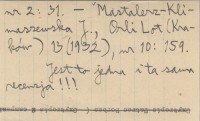 nr 2: 31. — Mastalerz-Kli-
maszewska J.,
Orli Lot (Kra-
ków) 13 (1932), nr 10: 159.
Jest to jedna i ta sama
recenzja !!!